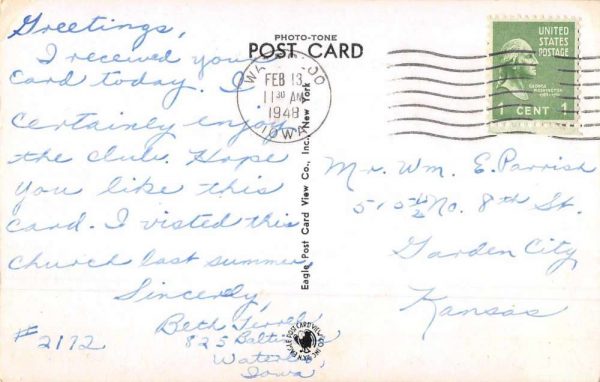 Greetings,
I received your
card today. I
certainly enjoy
the club. Hope
you like this
card. I visted this
church last summer.
Sincerly,
Beth
825
Waterloo,
Iowa
#2172
PHOTO-TONE
POST CARD
Eagle Post Card View Co., Inc., New York
WATERLOO
FEB 13
11 30 AM
1948
IOWA
UNITED
STATES
POSTAGE
GEORGE
WASHINGTON
1 CENT 1
Mr. Wm. E. Parrish
515 1/2 No. 8th St.
Garden City,
Kansas